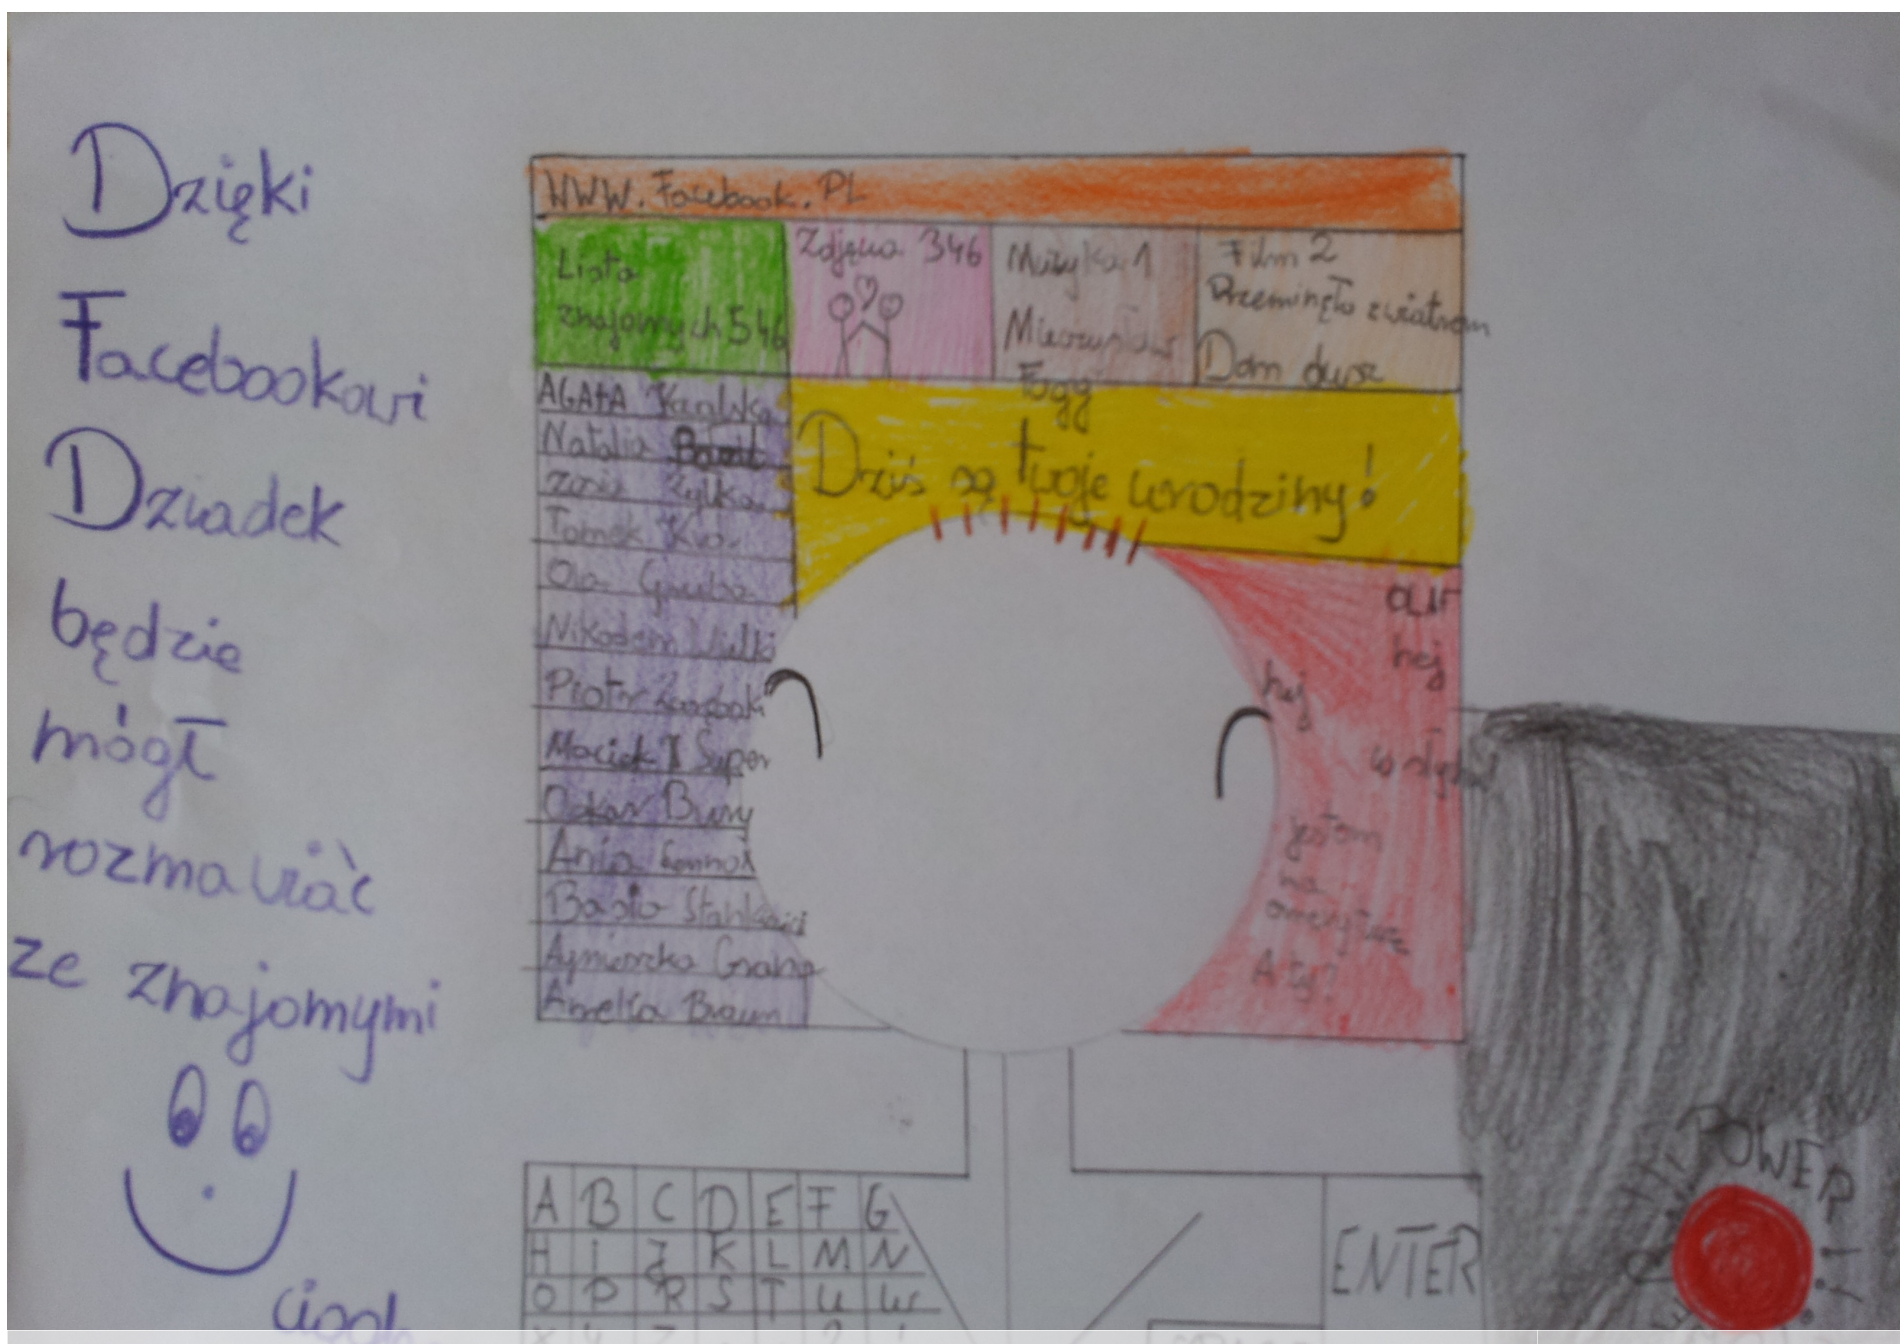 Dzięki
Facebookowi
Dziadek
będzie
mógł
rozmawiać
ze znajomymi
WWW.Facebook.PL
Lista
znajomych 546
Zdjęcia 346
Muzyka 1
Mieczysław
Fogg
Film 2
Przeminęło z wiatrem
Dom dusz
AGAtA
Natalia
Zosia Zyłka
Tomek
Ola Gruba
Nikodem Wielki
Piotr
Maciek Super
Oskar Bury
Ania
Basia
Agnieszka
Amelka Braum
Dziś są twoje urodziny!
hej
hej
jestem
na
emeryturze
A ty?
POWER
A B C D E F G
H I J K L M N
O P R S T U W
ENTER